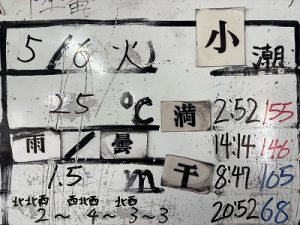 5/6 火 小潮
25 ℃ 満 2:52 155
雨/曇 14:14 146
1.5 m 干 8:47 105
北北西 西北西 北西 20:52 68
2~4~3~3